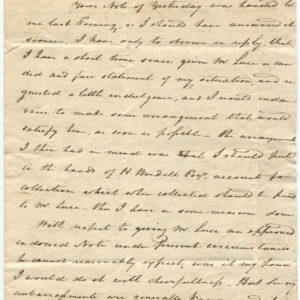 Your Note of Yesterday was handed to
me last Evening, or I should have answered it
sooner. I have only to observe in reply, that
I have a short time since given Mr Luce a can
did and fare statement of my situation, and re
quested a little indulgence, and I would endea
vour to make some arrangement that would
satisfy him, as soon as possible - the arrangement
I then had in mind was that I should put
in the hands of H Wendell Esqr. accounts for
collection which when collected should be paid
to Mr Luce this I have in some measure done
With respect to giving Mr Luce an approved
endorsed Note under Present circumstances
he cannot reasonably expect, was it in my power
I would do it with cheerfullness. But Sir my
embarrassments are generally known, and